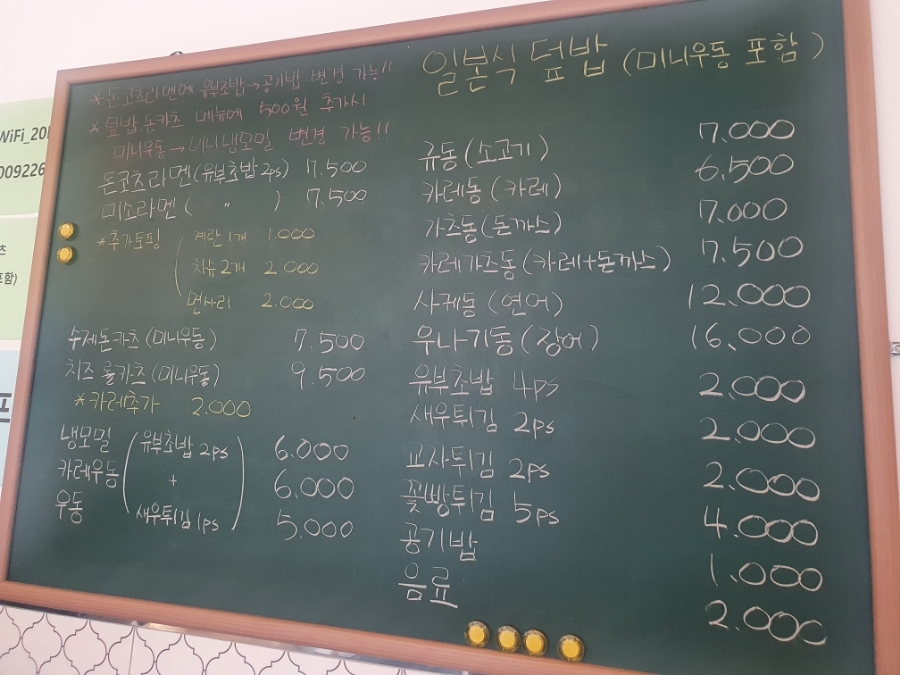 *돈코츠라멘에 유부초밥→공기밥 변경 가능!!
*덮밥.돈카츠 메뉴에 500원 추가시
미니우동→미니냉모밀 변경 가능!!
돈코츠라멘(유부초밥 2ps) 7.500
미소라멘( 〃 ) 7.500
*추가토핑
계란1개 1.000
차슈2개 2.000
면사리 2.000
수제돈카츠(미니우동) 7.500
치즈롤카츠(미니우동) 9.500
*카레추가 2.000
냉모밀 6.000
카레우동 6.000
우동 5.000
(유부초밥 2ps
+
새우튀김 1ps)
일본식 덮밥 (미니우동 포함)
규동(소고기) 7.000
카레동(카레) 6.500
가츠동(돈까스) 7.000
카레가츠동(카레+돈까스) 7.500
사케동(연어) 12.000
우나기동(장어) 16.000
유부초밥 4ps 2.000
새우튀김 2ps 2.000
교자튀김 2ps 2.000
꽃빵튀김 5ps 4.000
공기밥 1.000
음료 2.000
WiFi_20
009226
츠
포함)